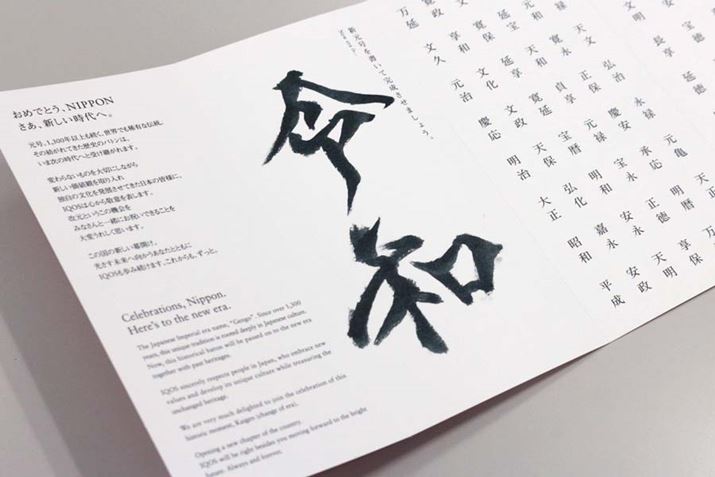 おめでとう、NIPPON
さあ、新しい時代へ。
元号。1,300年以上も続く、世界でも稀有な伝統。
その紡がれてきた歴史のバトンは、
いま次の時代へと受け継がれます。
変わらないものを大切にしながら
新しい価値観を取り入れ
独自の文化を発展させてきた日本の皆様に、
IQOSは心から敬意を表します。
改元というこの機会を
みなさんと一緒にお祝いできることを
大変うれしく思います。
この国の新しい幕開け。
光かす未来へ向かうあなたとともに
IQOSも歩み続けます。これからも、ずっと。
Celebrations, Nippon.
Here's to the new era.
The Japanese Imperial era name, "Gengo". Since over 1,300
years, this unique tradition is rooted deeply in Japanese culture.
Now, this historical baton will be passed on to the new era
together with past heritages.
IQOS sincerely respects people in Japan, who embrace new
values and develop its unique culture while treasuring the
unchanged heritage.
We are very much delighted to join the celebration of this
historic moment, Kaigen (change of era).
Opening a new chapter of the country.
IQOS will be right besides you moving forward to the bright
future. Always and forever.
新元号を書いて完成させましょう。
令和
寛保 延享 寛延 宝暦 明和 安永 天明
寛政 享和 文化 文政 天保 弘化 嘉永 安政
万延 文久 元治 慶応 明治 大正 昭和 平成